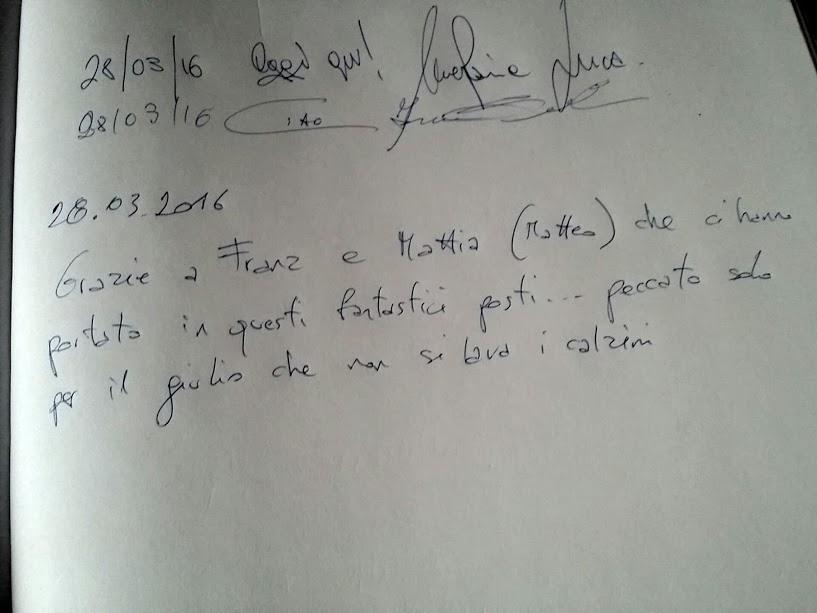 28/03/16 Oggi qui! Luca.
28/03/16 CIAO
28.03.2016
Grazie a Franz e Mattia (Matteo) che ci hanno
portato in questi fantastici posti... peccato solo
per il giulio che non si lava i calzini